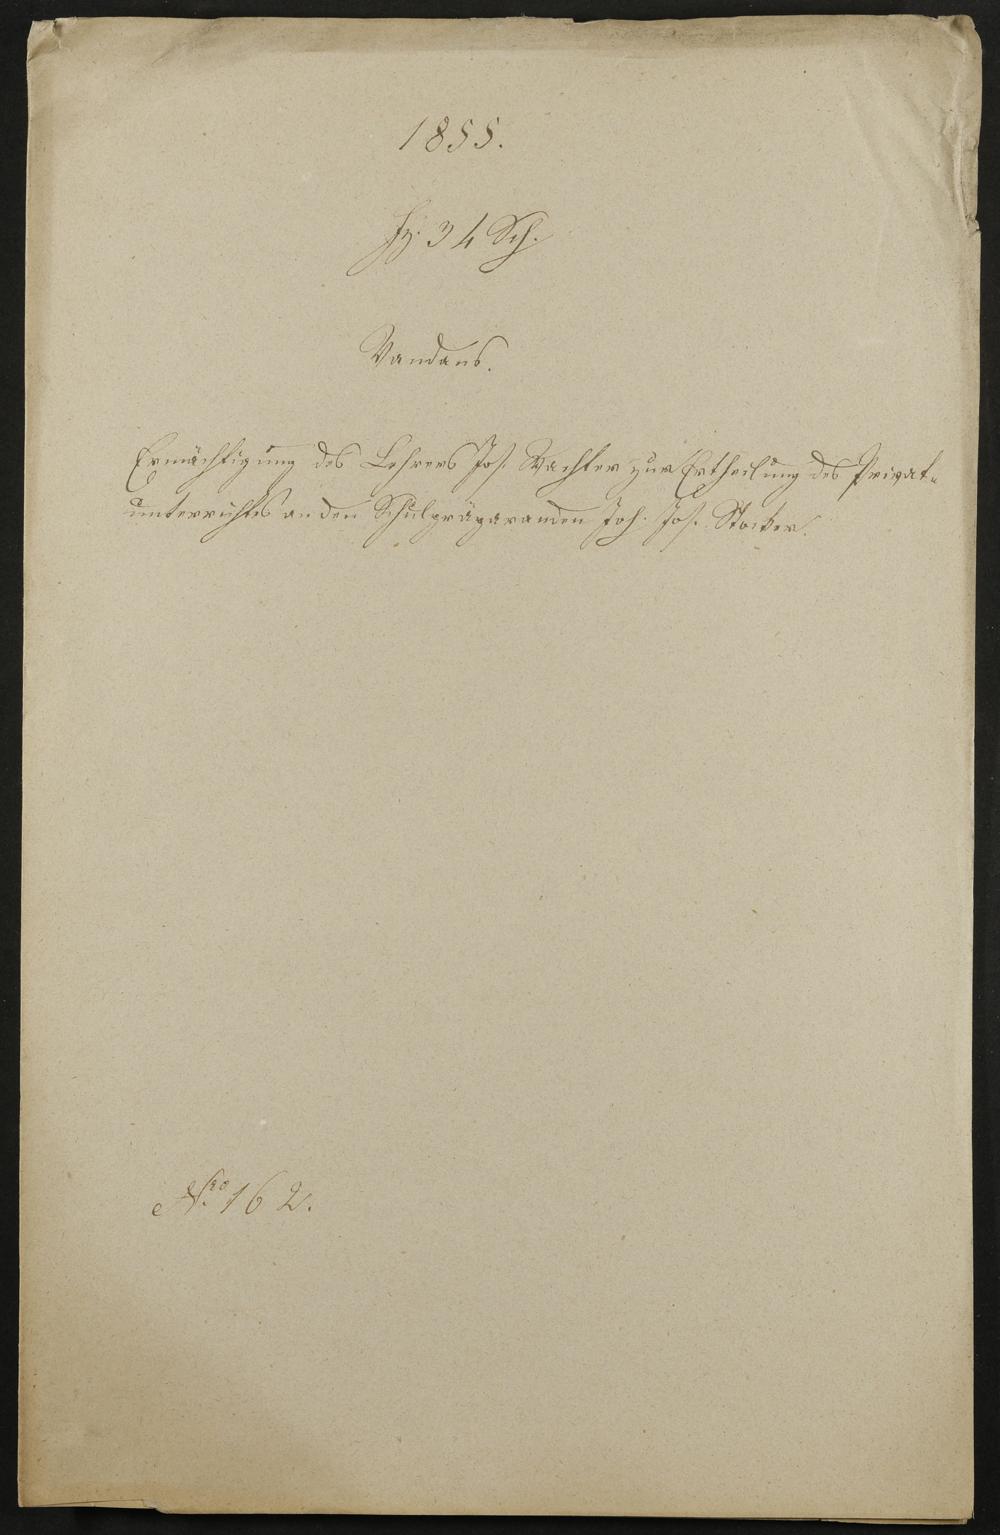 1855.
Fz. 34 Sch.
Vandans.
Ermächtigung des Lehrers Jos. Wachter zur Ertheilung des Privat-
unterrichtes an den Schulpräparanden Joh. Jos. Stocker.
Nro 162.